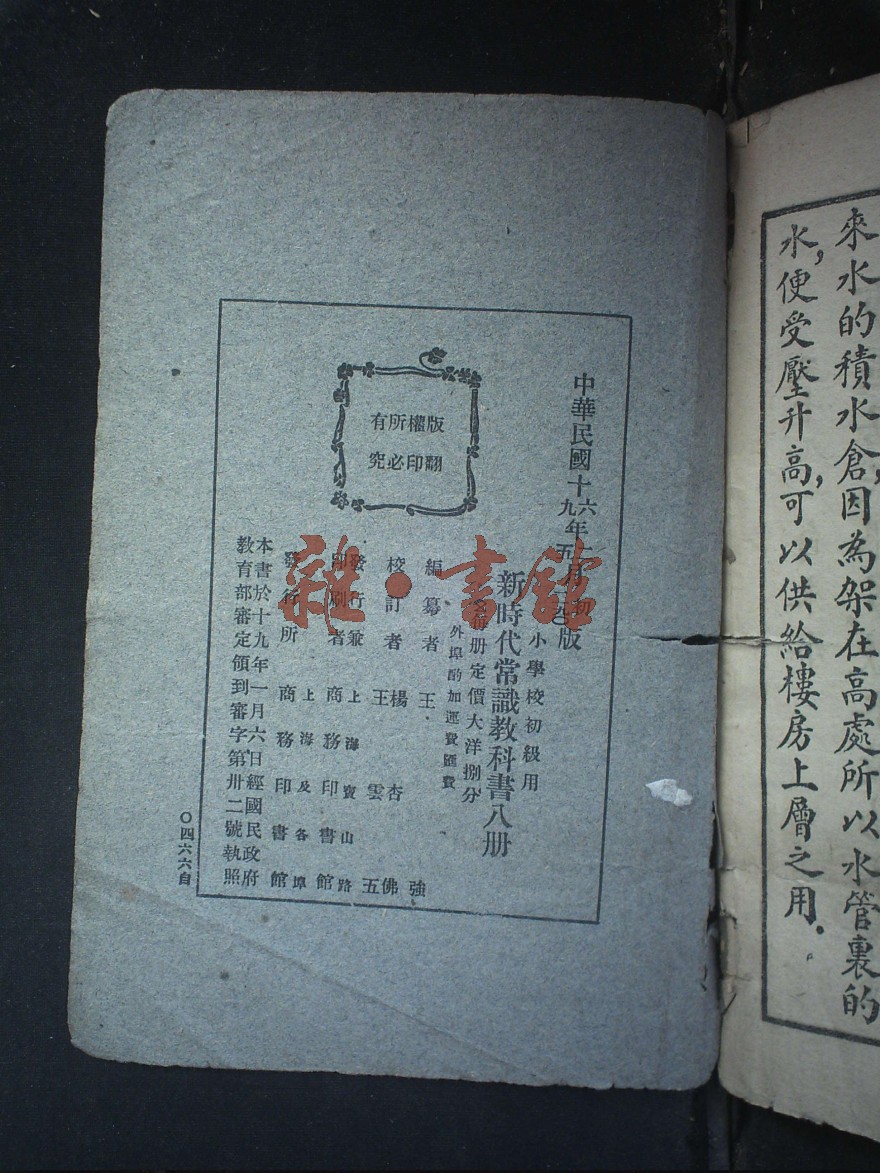 來水的積水倉,因為架在高處,所以水管裏的
水,便受壓升高,可以供給樓房上層之用.
中華民國十六年
九年五月
初版
版
小學校初級用
新時代常識教科書八册
册定價大洋捌分
外埠酌加運費匯費
編纂者 王強
校訂者 楊杏佛
王雲五
發行兼 上海寶山路
印刷者 商務印書館
發行所 上海及各埠
商務印書館
本書於十九年一月六日經國民政府
教育部審定領到審字第卅二號執照
版權所有
翻印必究
〇四六六自
雜·書館